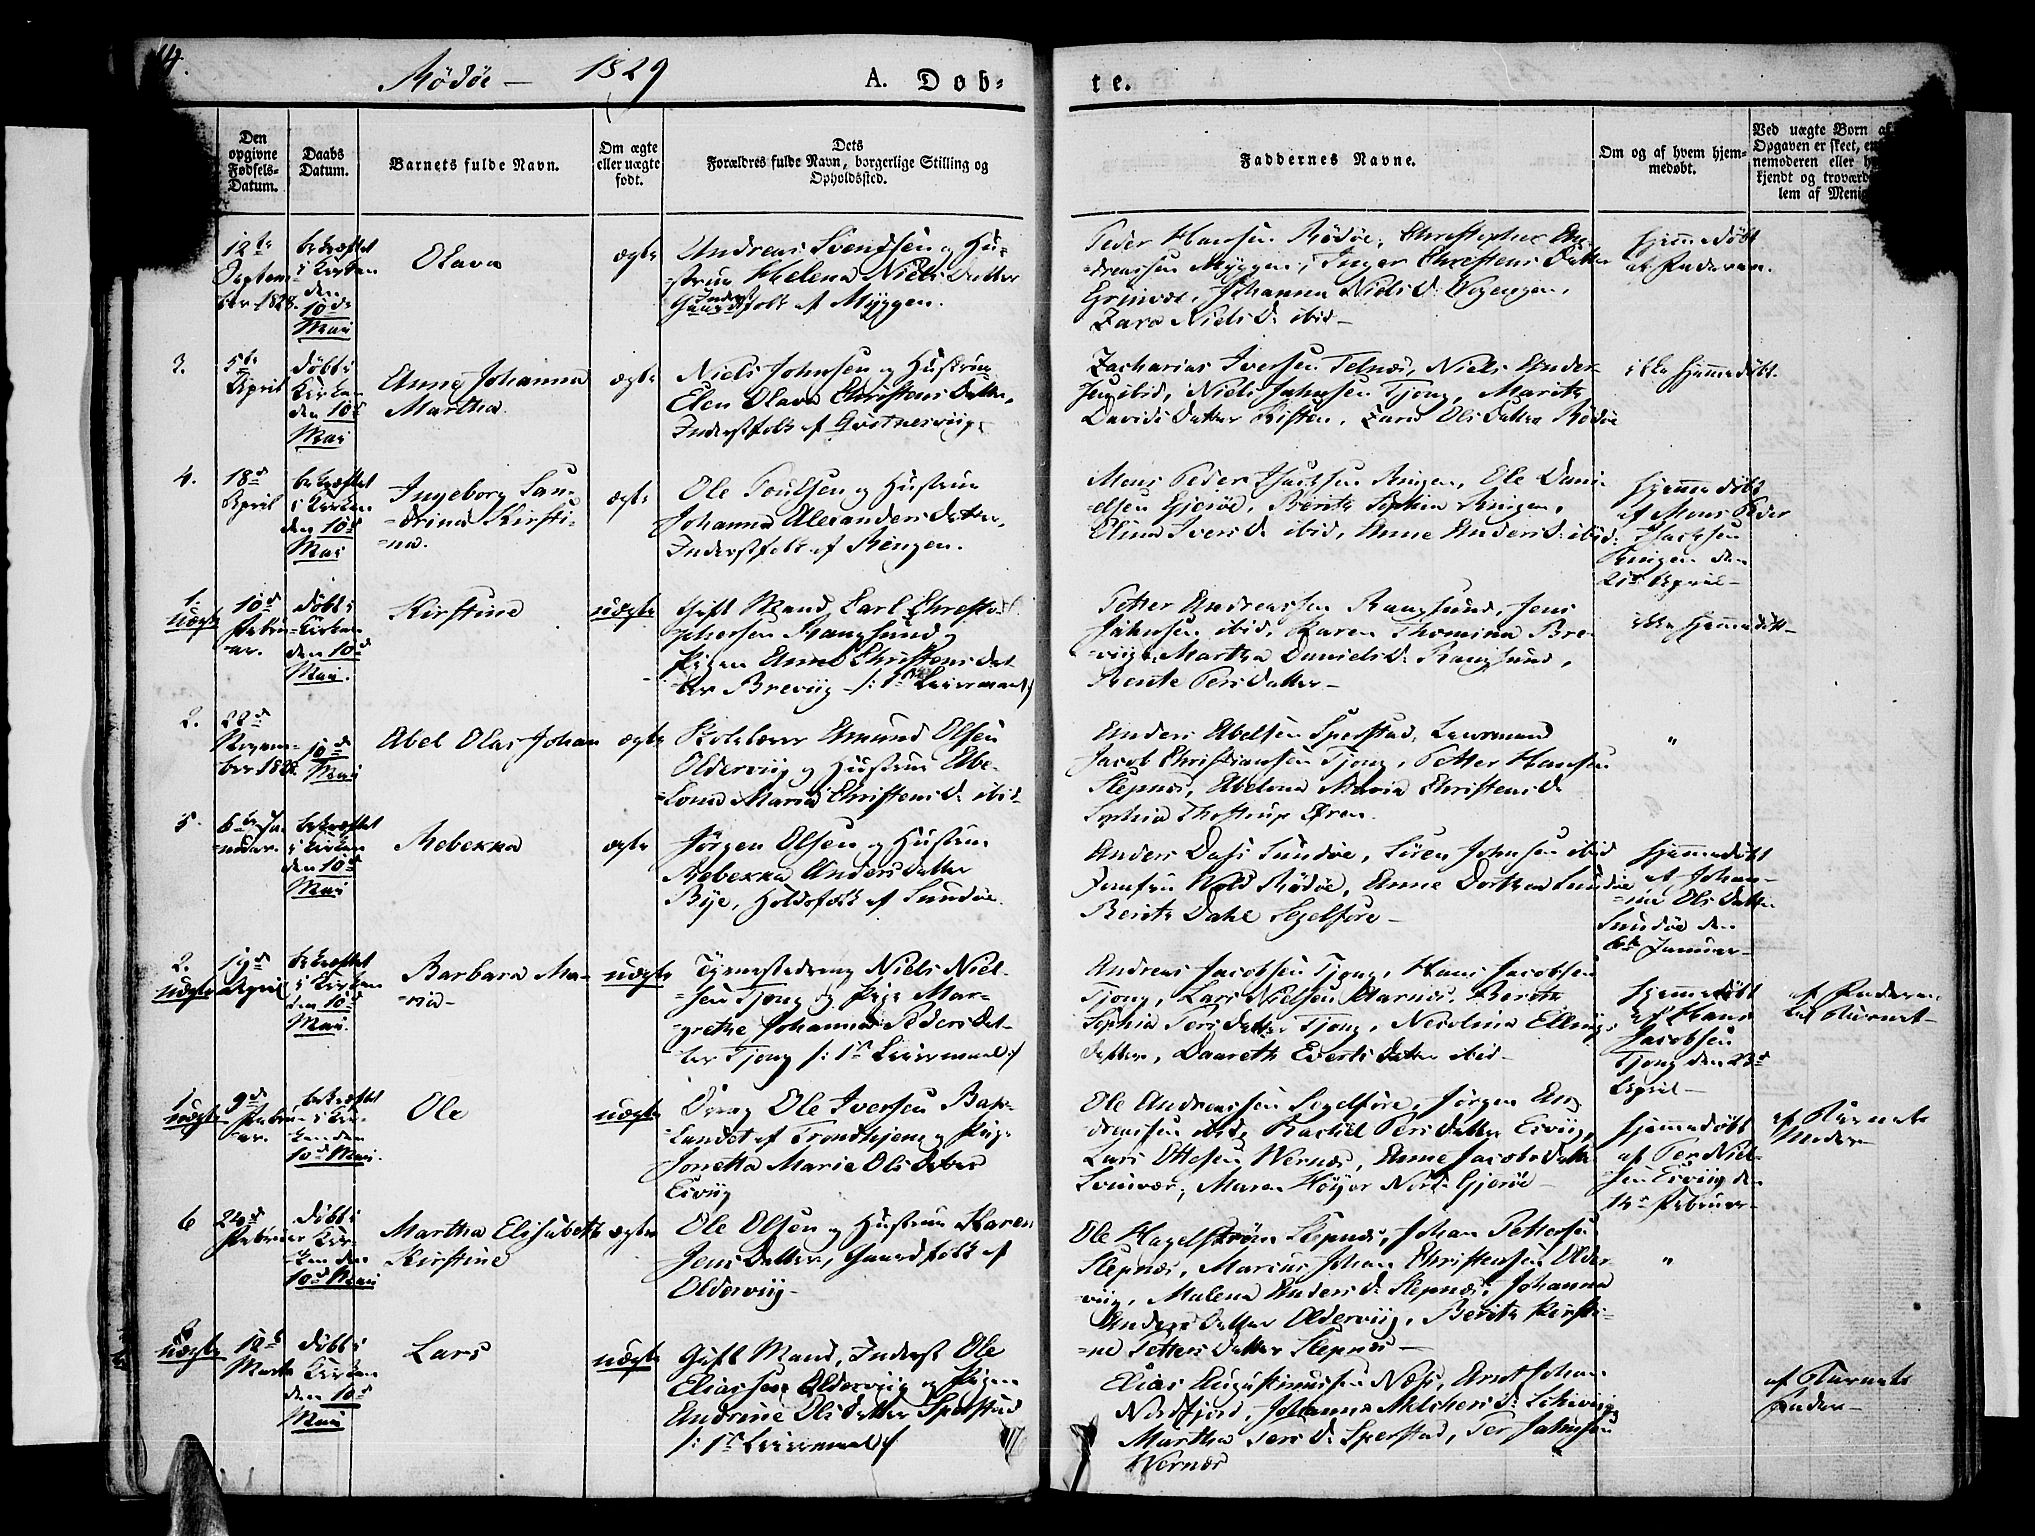 14.
Rödöe — 1829
A. Døb-
te.
Den
opgivne
Fødsels-
Datum.
Daabs
Datum.
Barnets fulde Navn.
Om ægte
eller uægte
født.
Dets
Forældres fulde Navn, borgerlige Stilling og
Opholdssted.
Faddernes Navne.
Om og af hvem hjem-
medøbt.
Ved uægte Børn af
Opgaven er skeet, en
nemoderen eller
kjendt og troværd
lem af Menig
12te
Septem
ber 1828.
bekræftet
i Kirken
den
10de
Mai
Olava
ægte
Andreas Svendsen og Hu-
strue Helena Niels Datter
Inderst
Gaardfolk af Myggen.
Peder Hansen Rödöe, Christopher An-
dreassen Myggen, Inger Christens Datter
Grinvær, Johanna Niels D.
Zara Niels D. ibid —
Hjemmedøbt
af Faderen.
3.
5te
April
døbt i
Kirken
den 10d
Mai
Anne Johanna
Martha.
ægte
Niels Johnsen og Hustrue
Elen Olava Christens Datter,
Inderstfolk af Grotnesviig.
Zacharias Iversen Telnæs, Niels Ander-
sen ibid, Niels Johnsen Tjong, Marith
Davids Datter Kisten, Zara Ols Datter Rödöe
ikke Hjemmedøbt.
4.
18d
April
bekræftet
i Kirken
den 10d
Mai
Ingeborg San-
drina Kirsti-
=na.
ægte
Ole Poulsen og Hustrue
Johanna Alexanders Datter,
Inderstfolk af Ringen.
Mons Peder Isachsen Ringen, Ole Dani-
elsen Gjeröe, Berith Sophia Ringen,
Elina Ivers D. ibid, Anne Anders D. ibid.
Hjemmedøbt
af Mons Peder
Isachsen
Ringen den
21d April —
1.
uægte
10d
Febru-
ar.
døbt i
Kirken
den 10d
Mai.
Kirstine
uægte
Gift Mand, Carl Christo-
phersen Rangsund og
Pigen Anne Christens Dat-
ter Breviig — /: 1ste Leiermaal :/
Petter Andreassen Rangsund, Jens
Johnsen ibid, Karen Thomina Bre-
viig, Martha Daniels D. Rangsund,
Bente Pers Datter —
ikke Hjemmedøbt —
2.
22d
Novem-
ber 1828
10de
Mai
Abel Olas Johan
ægte
Amund Olsen
Olderviig og Hustrue Abe-
lona Maria Christens D. ibid —
Anders Abelsen Sperstad, Leensmand
Jacob Christiansen Tjong, Petter Hansen
Slepnæs, Abelona Maria Christens D.
Sophia Thostrup Ören.
"
5.
6te Ja-
nuar.
bekræftet
i Kirken
den 10d
Mai
Rebekka
ægte
Jörgen Olsen og Hustrue
Rebekka Anders Datter
Bye, Holdsfolk af Sundöe.
Anders Dass Sundöe, Sören Johnsen ibid
Wold Rödöe, Anne Dorthea Sundöe
Berith Dahl Segelföre —
Hjemmedøbt
af Johan-
=na Ols Datter
Sundöe den
6te Januar —
2.
uægte
19d
April
bekræftet
i Kirken
den 10d
Mai.
Barbara Ma-
=ria —
uægte
Tjenestedreng Niels Niel-
sen Tjong og Pige Mar-
grethe Johanna Peders Dat-
ter Tjong /: 1ste Leiermaal :/
Andreas Jacobsen Tjong, Hans Jacobsen
Tjong, Lars Nielsen Aarnæs, Berith
Sophia Pers Datter Tjong, Nicolina Ellings
Datter, Daareth Everts Datter ibid —
Hjemmedøbt
af Hans
Jacobsen
Tjong den 23d
April —
af Faderen
til Barnet —
1.
uægte
9d
Febru-
ar.
bekræftet
i Kir-
ken den
10d Mai.
Ole
uægte
Dreng Ole Iversen Bak-
landet af Trondhjem og Pige
Jonetta Marie Ols Datter
Esviig
Ole Andreassen Segelföre, Jörgen An-
dreassen ibid, Rachel Pers Datter Esviig,
Lars Ottesen Wernæs, Anne Jacobs Datter
Svinvær, Maren Höyer Nord-Gjeröe —
Hjemmedøbt
af Per Niel-
sen Esviig den
14d Februar —
af Barnets
Moder
6
24d
Februar
døbt i
Kir-
ken den
10d Mai
Martha Elisabeth
Kirstine
ægte
Ole Olsen og Hustrue Karen
Jens Datter, Gaardfolk af
Olderviig —
Ole Hagelström Slepnæs, Johan Pettersen
Slepnæs, Marcus Johan Christensen Older-
viig, Malena Anders D. Slepnæs, Johanna
Anders Datter Olderviig, Berith Kirsti-
=ne Petters Datter Slepnæs —
"
uægte
12te
Marts
døbt i
Kirken
den 10d
Mai
Lars
uægte
Gift Mand, Inderst Ole
Eliassen Olderviig og Pigen
Andrine Ols Datter Sperstad
/: 1ste Leiermaal :/
Elias Augustinussen Næss, Arnt Johan
Nordfjord, Johanna Melchers D.
Martha Pers D. Sperstad, Per Johnsen
Wernæs
af Barnets
Fader —